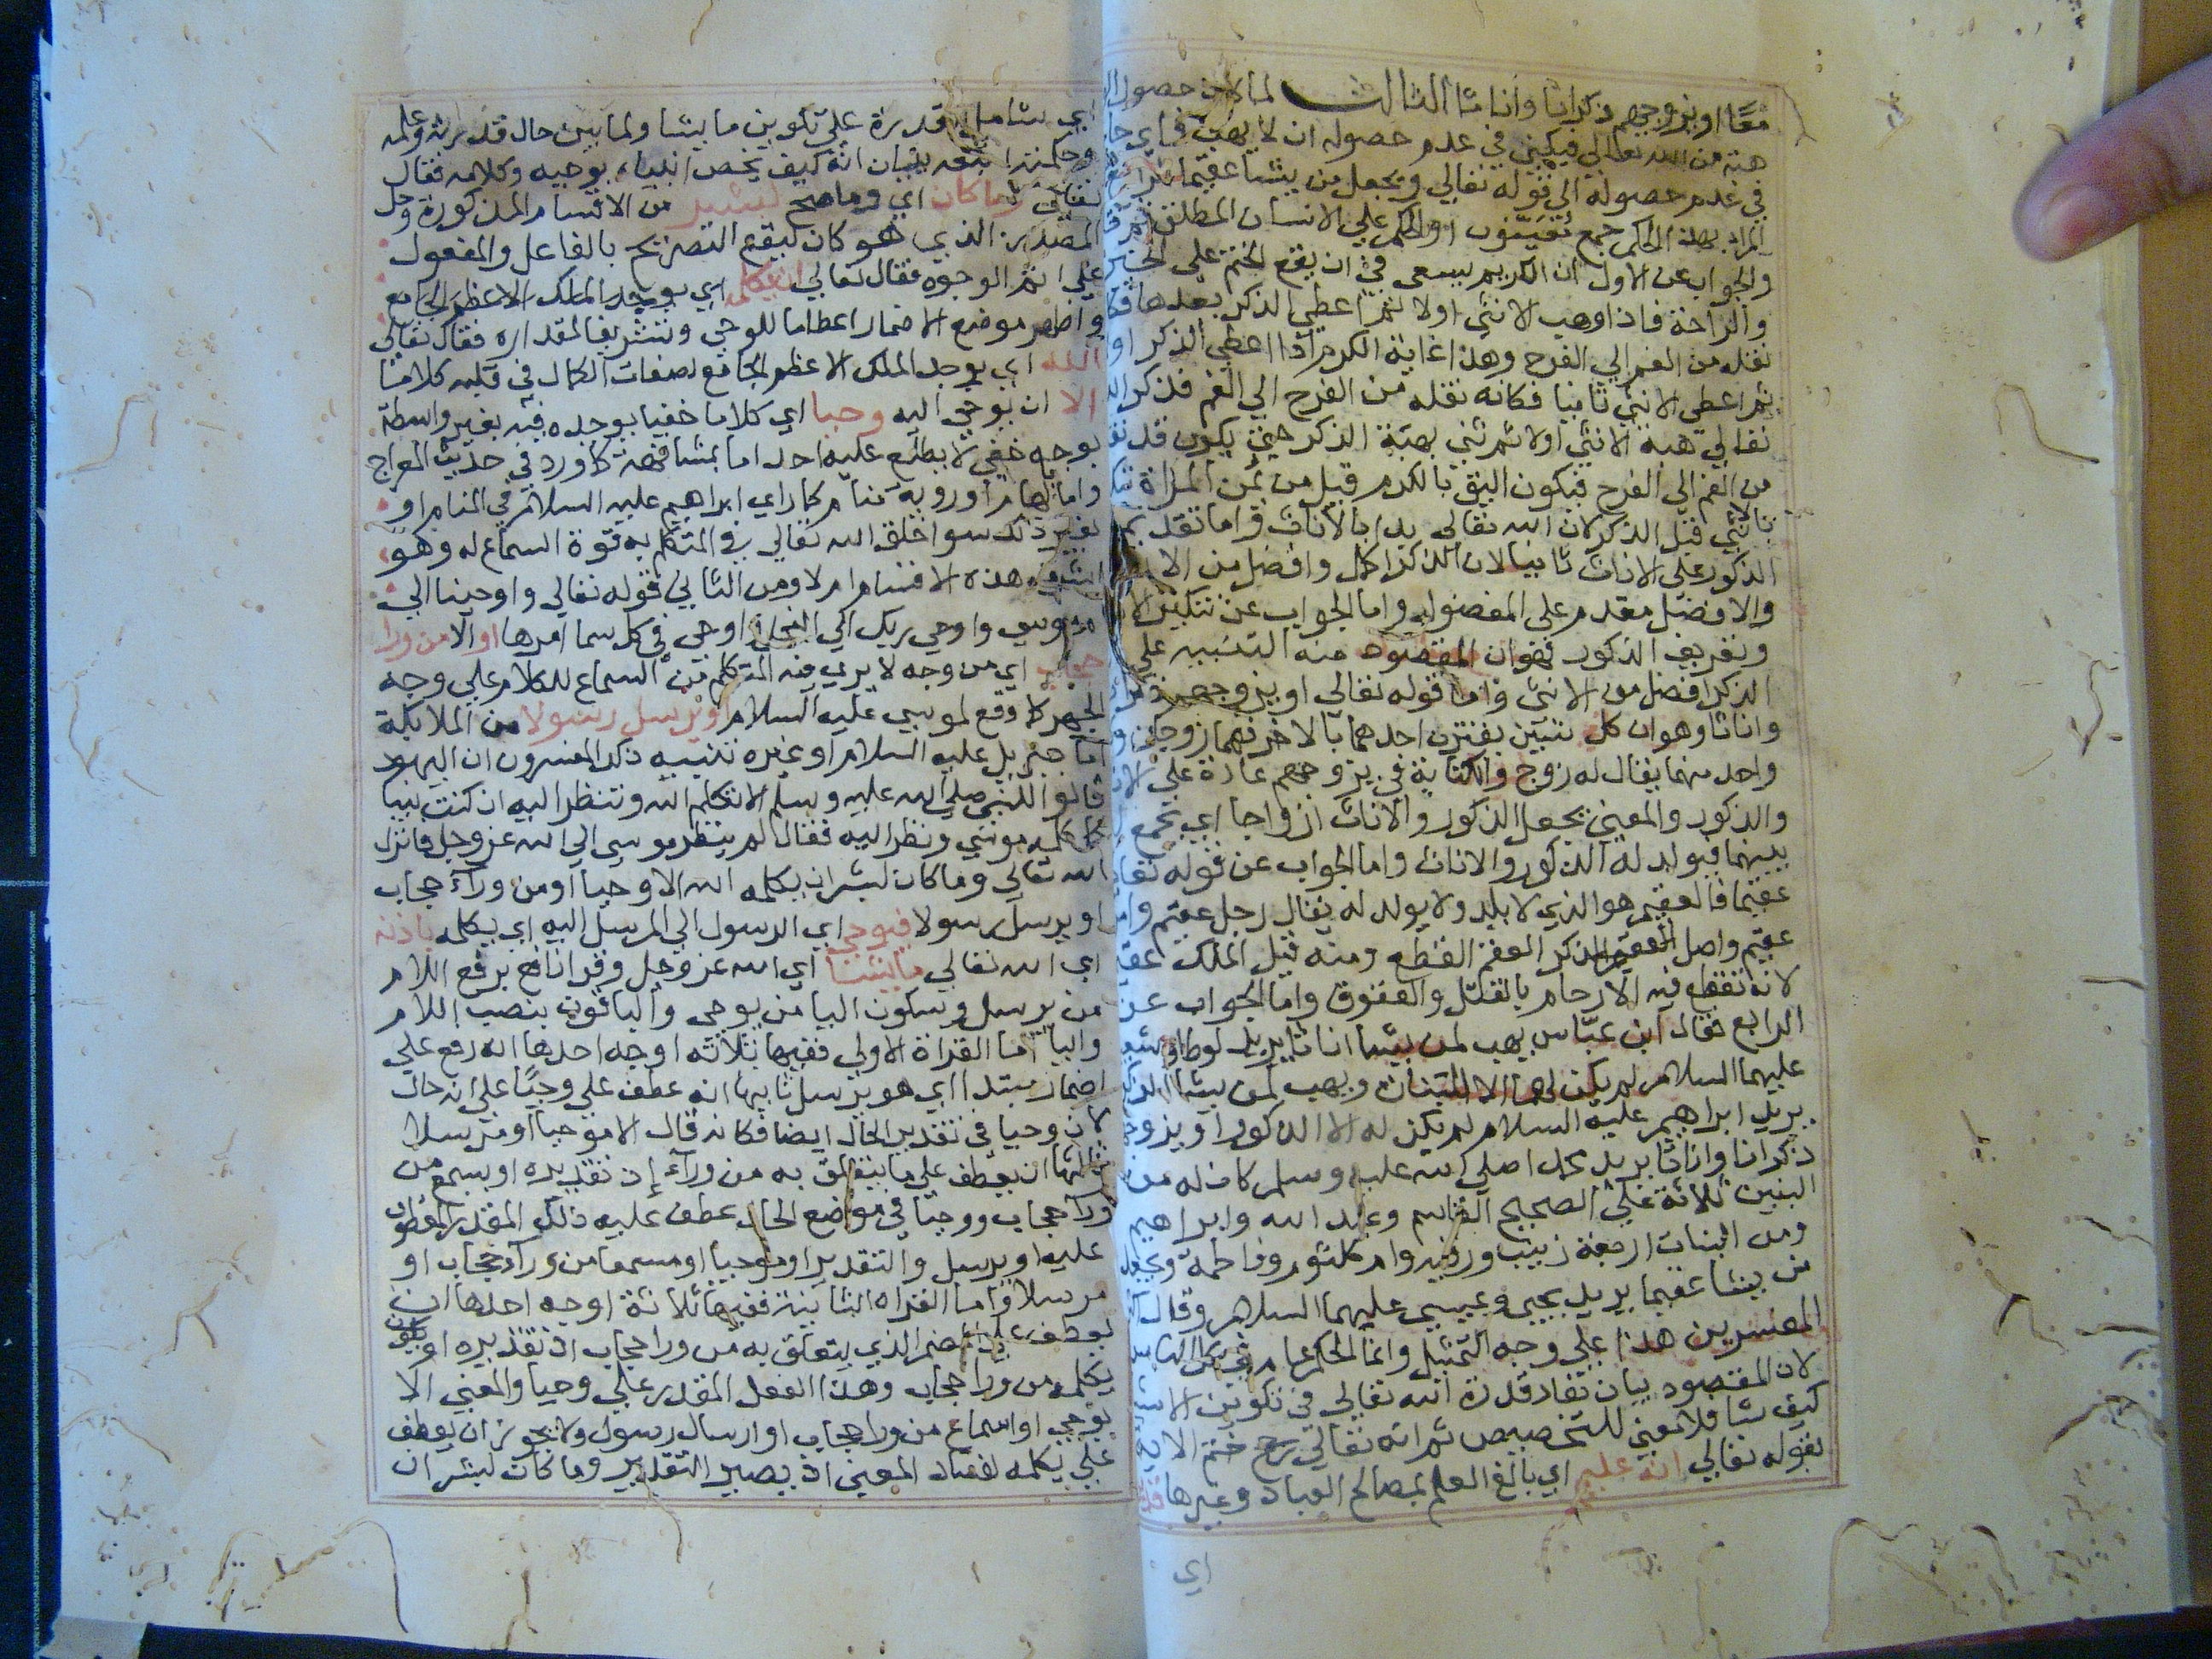 معًا او يزوجهم ذكرانا واناثا الثالث لما كان حصول
هبة من الله تعالى فيكفي في عدم حصوله ان لا يهب فاي
في عدم حصوله الي قوله تعالي ويجعل من يشا عقيما الرابع
المراد بهذا الحكم جمع معينون او الحكم علي الانسان المطلق
والجواب عن الاول ان الكريم يسعي في ان يقع الختم على الخير
والراحة فاذا وهب الانثي اولا ثم اعطي الذكر بعدها
نقله من الغم الي الفرح وهذا غاية الكرم اذا اعطي الذكر او
ثم اعطي الانثي ثانيا فكانه نقله من الفرح الي الغم فذكر
تعالي هبة الانثي اولا ثم ثني بهبة الذكر حتي يكون قد
من الغم الي الفرح فيكون اليق بالكرم قيل من يمن المراة
بالانثي قبل الذكر لان الله تعالي بدا بالاناث واما تقديم
الذكور علي الاناث ثانيا لان الذكر اكمل وافضل من
والافضل مقدم على المفضول واما الجواب عن تنكير
وتعريف الذكور فهو ان المقصود منه التنبيه علي
الذكر افضل من الانثى واما قوله تعالي او يزوجهم
واناثا وهو ان كل شيئين يقترن احدهما بالاخر فهما زوجان
واحد منهما يقال له زوج والكناية في يزوجهم عائدة علي
والذكور والمعني يجعل الذكور والاناث ازواجا اي يجمع
بينهما فيولد له الذكور والاناث واما الجواب عن قوله
عقيما فالعقيم هو الذي لا يلد ولا يولد له يقال رجل عقيم
عقيم واصل العقم القطع ومنه قيل الملك
لانه تقطع فيه الارحام بالقتل والعقوق واما الجواب عن
الرابع فقال ابن عباس يهب لمن يشا اناثا يريد لوطا
عليهما السلام لم يكن لهما الا البنات ويهب لمن يشا
يريد ابراهيم عليه السلام لم يكن له الا الذكور او
ذكرانا واناثا يريد محمدا صلي الله عليه وسلم كان له من
البنين ثلاثة علي الصحيح القاسم وعبد الله وابراهيم
ومن البنات اربعة زينب ورقيه وام كلثوم وفاطمة ويجعل
من يشا عقيما يريد يحيي وعيسي عليهما السلام وقال
المفسرين هذا علي وجه التمثيل وانما الحكم عام في
لان المقصود بيان نفاذ قدرة الله تعالي في تكوين
كيف يشا فلا معني للتخصيص ثم انه تعالي ختم
بقوله تعالي انه عليم اي بالغ العلم بمصالح العباد وغيرها
اي
اي شامل القدرة علي تكوين ما يشا ولما بين حال قدرته وعلمه
وحكمته اتبعه ببيان انه كيف يخص انبياء بوحيه وكلامه فقال
تعالي وما كان اي وما صح لبشر من الاقسام المذكورة وحل
المصدر الذي هو كان ليقع التصريح بالفاعل والمفعول
علي اتم الوجوه فقال تعالي ان يكلمه اي يوجد الملك الاعظم الجامع
واظهر موضع الاضمار اعظاما للوحي وتشريفا لمقداره فقال تعالي
الله اي يوجد الملك الاعظم الجامع لصفات الكمال في قلبه كلاما
الا ان يوحي اليه وحيا اي كلاما خفيا يوجده فيه بغير واسطة
بوجه خفي لا يطلع عليه احد اما بمشافهة كما ورد في حديث المعراج
واما بالهام او روية منام كما راي ابراهيم عليه السلام في المنام او
بغير ذلك سوا خلق الله تعالي في المتكلم به قوة السماع له وهو
اشرف هذه الاقسام ام لا ومن الثاني قوله تعالي واوحينا الي
ام موسي واوحي ربك الي النحل واوحي في كل سما امرها او الا من ورا
حجاب اي من وجه لا يري فيه المتكلم من السماع للكلام علي وجه
الجهر كما وقع لموسي عليه السلام او يرسل رسولا من الملايكة
اما جبريل عليه السلام او غيره تنبيه ذكر المفسرون ان اليهود
قالوا للنبي صلي الله عليه وسلم الا تكلم الله وتنظر اليه ان كنت نبيا
كما كلمه موسي ونظر اليه فقال لم ينظر موسي الي الله عز وجل فانزل
الله تعالي وما كان لبشر ان يكلمه الله الا وحيا او من ورآء حجاب
او يرسل رسولا فيوحي اي الرسول الي المرسل اليه اي يكلمه باذنه
اي الله تعالي ما يشا اي الله عز وجل وقرا نافع برفع اللام
من يرسل وسكون اليا من يوحي والباقون بنصب اللام
واليا اما القراة الاولي ففيها ثلاثه اوجه احدها انه رفع علي
اضمار مبتدا اي هو يرسل ثانيها انه عطف علي وحيًا علي انه حال
لان وحيا في تقدير الحال ايضا فكانه قال الا موحيا او مرسلا
ثالثها ان يعطف علي ما يتعلق به من ورآء اذ تقديره او يسمع من
ورآ حجاب ووحيا في موضع الحال عطف عليه ذلك المقدر المعطوف
عليه او يرسل والتقدير او موحيا او مسمعا من ورآء حجاب او
مرسلا واما القراه الثانية ففيها ثلاثة اوجه احدها ان
يعطف علي المضمر الذي يتعلق به من ورا حجاب اذ تقديره او
يكلمه من ورا حجاب وهذا الفعل المقدر علي وحيا والمعني الا
بوحي او اسماع من ورا حجاب او ارسال رسول ولا يجوز ان يعطف
علي يكلمه لفساد المعني اذ يصير التقدير وما كان لبشر ان